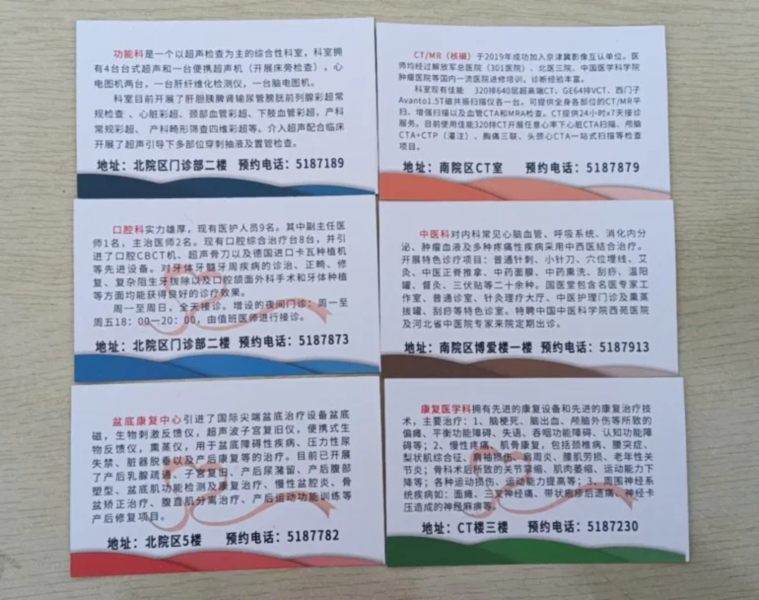 功能科是一个以超声检查为主的综合性科室，科室拥
有4台台式超声和一台便携超声机（开展床旁检查），心
电图机两台，一台肝纤维化检测仪，一台脑电图机。
科室目前开展了肝胆胰脾肾输尿管膀胱前列腺彩超常
规检查 、心脏彩超、颈部血管彩超、下肢血管彩超，产科
常规彩超、 产科畸形筛查四维彩超等。介入超声配合临床
开展了超声引导下多部位穿刺抽液及置管检查。
地址：北院区门诊部二楼 预约电话：5187189
CT/MR（核磁）于2019年成功加入京津冀影像互认单位。医
师均经过解放军总医院（301医院）、北医三院、中国医学科学院
肿瘤医院等国内一流医院进修培训，诊断经验丰富。
科室现有佳能 320排640层超高端CT、GE64排VCT、西门子
Avanto1.5T磁共振扫描仪各一台。可提供全身各部位的CT/MR平
扫、增强扫描以及血管CTA和MRA检查。CT提供24小时x7天接诊
服务。目前使用佳能320排CT开展任意心率下心脏CTA扫描、颅脑
CTA+CTP（灌注）、胸痛三联、头颈心CTA一站式扫描等检查
项目。
地址：南院区CT室 预约电话：5187879
口腔科实力雄厚，现有医护人员9名。其中副主任医
师1名，主治医师2名。现有口腔综合治疗台8台，并引
进了口腔CBCT机、超声骨刀以及德国进口卡瓦种植机
等先进设备。对牙体牙髓牙周疾病的诊治、正畸、修
复、复杂阻生牙拔除以及口腔颌面外科手术和牙体种植
等方面均能获得良好的诊疗效果。
周一至周日，全天接诊。增设的夜间门诊：周一至
周五18：00—20：00，由值班医师进行接诊。
地址：北院区门诊部二楼 预约电话：5187873
中医科对内科常见心脑血管、呼吸系统、消化内分
泌、肿瘤血液及多种疼痛性疾病采用中西医结合治疗。
开展特色诊疗项目：普通针刺、小针刀、穴位埋线、艾
灸、中医正脊推拿、中药面膜、中药熏洗、刮痧、温阳
罐、督灸、三伏贴等二十余种。国医堂包含名医专家工
作室、普通诊室、针灸理疗大厅、中医护理门诊及熏蒸
拔罐、刮痧等特色诊室。特聘中国中医科学院西苑医院
及河北省中医院专家来院定期出诊。
地址：南院区博爱楼一楼 预约电话：5187913
盆底康复中心引进了国际尖端盆底治疗设备盆底
磁，生物刺激反馈仪，超声波子宫复旧仪，便携式生
物反馈仪，熏蒸仪，用于盆底障碍性疾病、压力性尿
失禁、脏器脱垂以及产后康复等的治疗。目前已开展
了产后乳腺疏通、子宫复旧、产后尿潴留、产后腹部
塑型、盆底肌功能检测及康复治疗、慢性盆腔炎、骨
盆矫正治疗、腹直肌分离治疗、产后运动功能训练等
产后修复项目。
地址：北院区5楼 预约电话：5187782
康复医学科拥有先进的康复设备和先进的康复治疗技
术。主要治疗：1、脑梗死、脑出血、颅脑外伤等所致的
偏瘫、平衡功能障碍、失语、吞咽功能障碍、认知功能障
碍等；2、慢性疼痛，肌骨康复，包括颈椎病、腰突症、
梨状肌综合征、肩袖损伤、肩周炎、腰肌劳损、老年性关
节炎；骨科术后所致的关节挛缩、肌肉萎缩、运动能力下
降等；各种运动损伤、运动能力提高等；3、周围神经系
统疾病如：面瘫、三叉神经痛、带状疱疹后遗痛、神经卡
压造成的神经麻痹等。
地址：CT楼三楼 预约电话：5187230